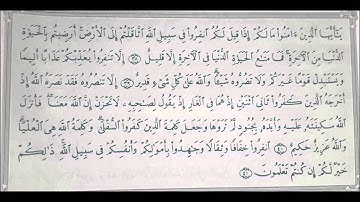 يَٰٓأَيُّهَا ٱلَّذِينَ ءَامَنُوا۟ مَا لَكُمْ إِذَا قِيلَ لَكُمُ ٱنفِرُوا۟ فِى سَبِيلِ ٱللَّهِ ٱثَّاقَلْتُمْ إِلَى ٱلْأَرْضِ أَرَضِيتُم بِٱلْحَيَوٰةِ
ٱلدُّنْيَا مِنَ ٱلْءَاخِرَةِ فَمَا مَتَٰعُ ٱلْحَيَوٰةِ ٱلدُّنْيَا فِى ٱلْءَاخِرَةِ إِلَّا قَلِيلٌ ٣٨ إِلَّا تَنفِرُوا۟ يُعَذِّبْكُمْ عَذَابًا أَلِيمًا
وَيَسْتَبْدِلْ قَوْمًا غَيْرَكُمْ وَلَا تَضُرُّوهُ شَيْـًٔا وَٱللَّهُ عَلَىٰ كُلِّ شَىْءٍ قَدِيرٌ ٣٩ إِلَّا تَنصُرُوهُ فَقَدْ نَصَرَهُ ٱللَّهُ إِذْ
أَخْرَجَهُ ٱلَّذِينَ كَفَرُوا۟ ثَانِىَ ٱثْنَيْنِ إِذْ هُمَا فِى ٱلْغَارِ إِذْ يَقُولُ لِصَٰحِبِهِۦ لَا تَحْزَنْ إِنَّ ٱللَّهَ مَعَنَا فَأَنزَلَ
ٱللَّهُ سَكِينَتَهُۥ عَلَيْهِ وَأَيَّدَهُۥ بِجُنُودٍ لَّمْ تَرَوْهَا وَجَعَلَ كَلِمَةَ ٱلَّذِينَ كَفَرُوا۟ ٱلسُّفْلَىٰ وَكَلِمَةُ ٱللَّهِ هِىَ ٱلْعُلْيَا
وَٱللَّهُ عَزِيزٌ حَكِيمٌ ٤٠ ٱنفِرُوا۟ خِفَافًا وَثِقَالًا وَجَٰهِدُوا۟ بِأَمْوَٰلِكُمْ وَأَنفُسِكُمْ فِى سَبِيلِ ٱللَّهِ ذَٰلِكُمْ
خَيْرٌ لَّكُمْ إِن كُنتُمْ تَعْلَمُونَ ٤١